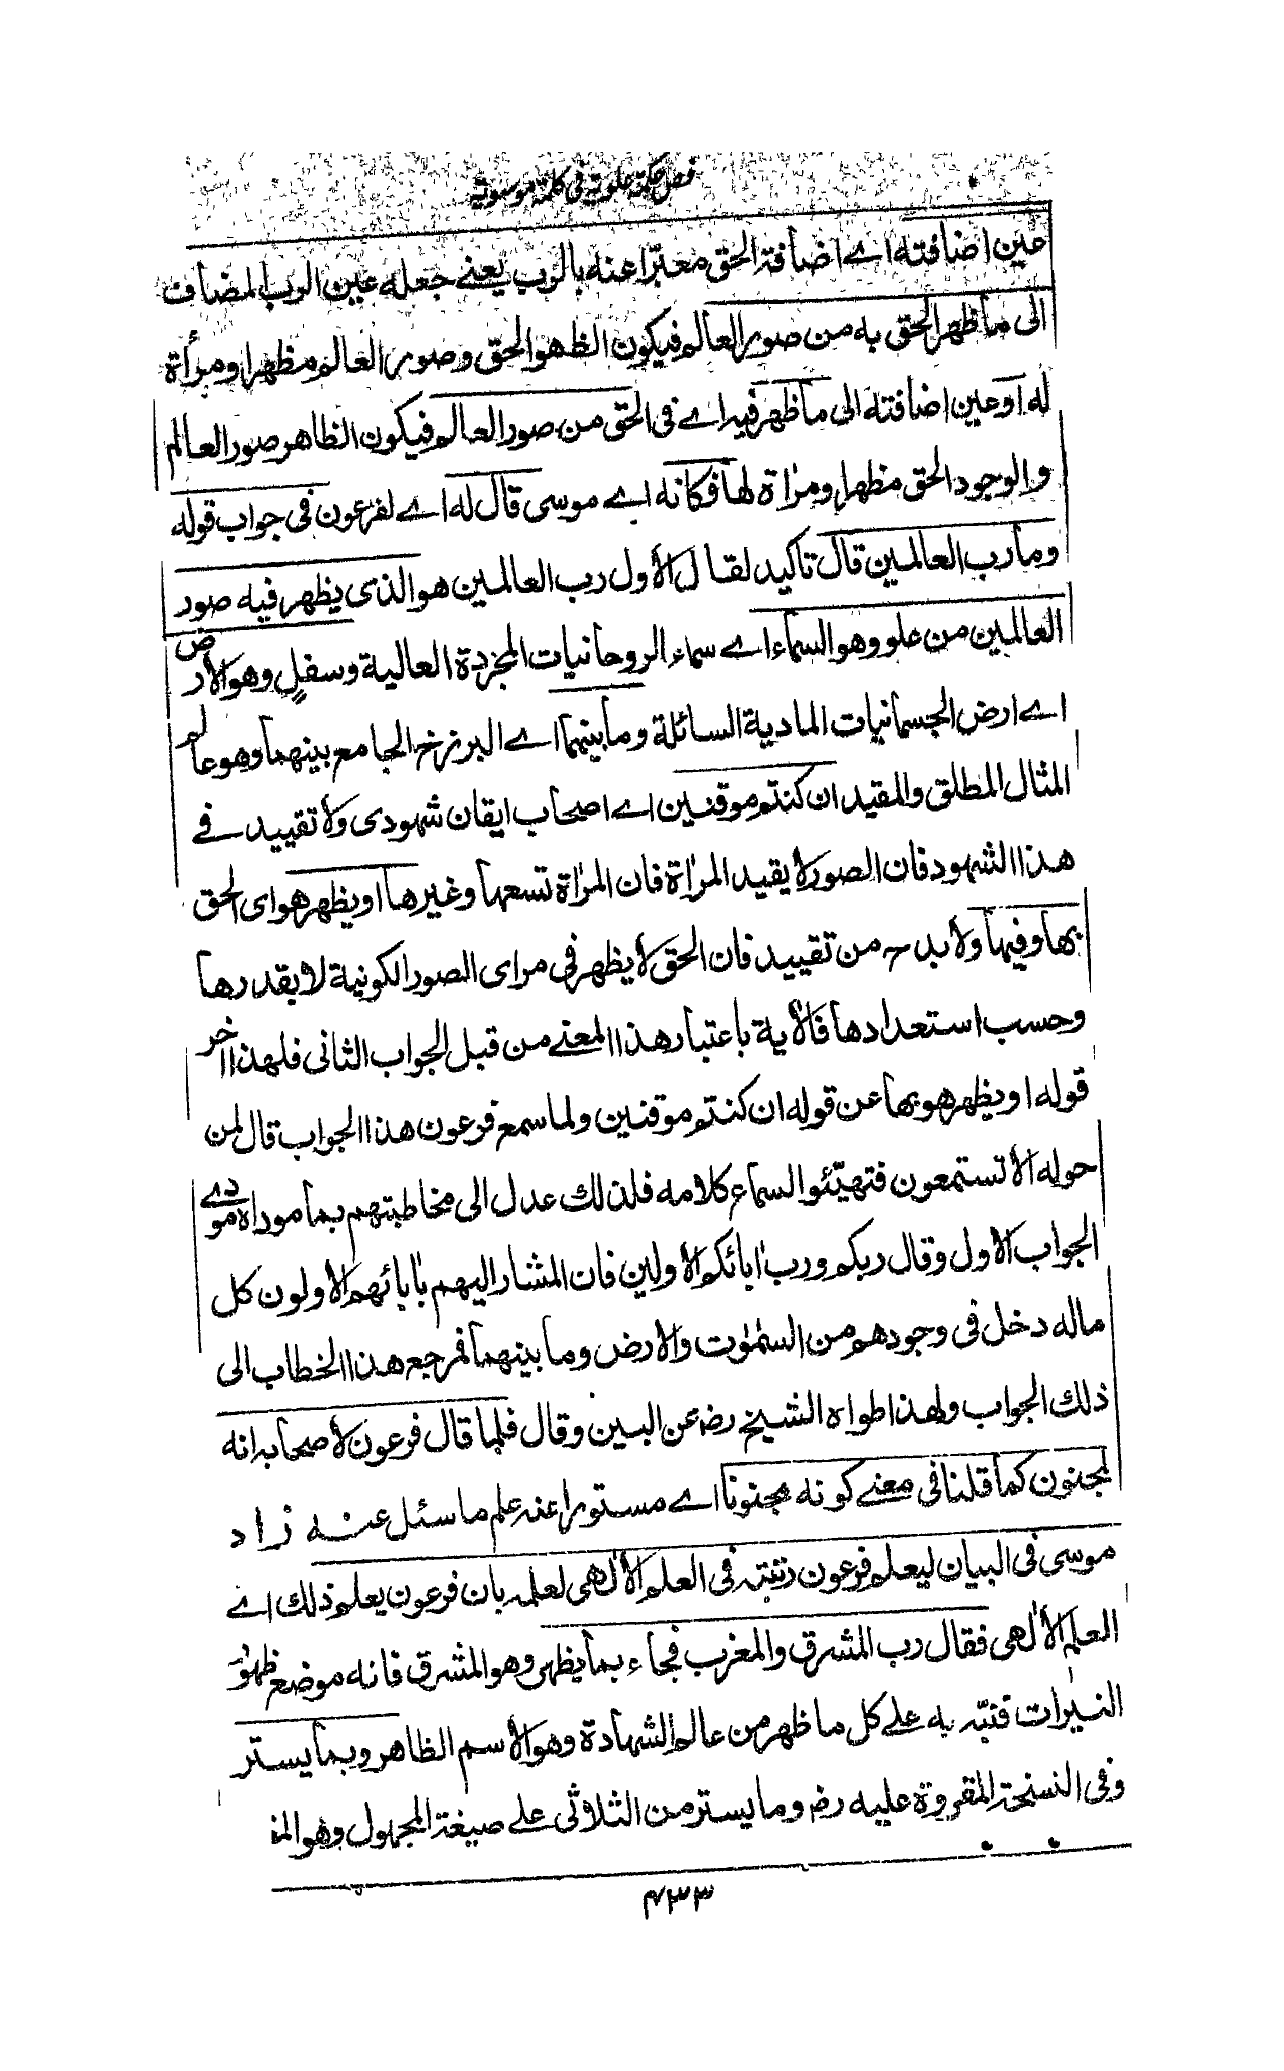 فص حكمة علوية في كلمة موسوية
عين اضافته اے اضافة الحق معبرا عنه بالرب يعنے جعله عين الرب المضاف
الى ما ظهر الحق به من صور العالم فيكون الظهو الحق وصور العالم مظهرا ومرأة
له او عين اضافته الى ما ظهر فيه اے فى الحق من صور العالم فيكون الظاهر صور العالم
والوجود الحق مظهرا ومراة لها فكانه اے موسى قال له اے لفرعون فى جواب قوله
وما رب العالمين قال تاكيد لقال الأول رب العالمين هو الذى يظهر فيه صور
العالمين من علو وهو السماء اے سماء الروحانيات المجردة العالية وسفل وهو الارض
اے ارض الجسمانيات المادية السائلة وما بينهما اے البرزخ الجامع بينهما وهو عالم
المثال المطلق والمقيد ان كنتم موقنين اے اصحاب ايقان شهودى ولا تقييد فے
هذا الشهود فان الصور لا يقيد المراة فان المراة تسعها وغيرها او يظهر هو اى الحق
بها وفيها ولا بد ح من تقييد فان الحق لا يظهر فى مراى الصور الكونية لا بقدرها
وحسب استعدادها فالأية باعتبار هذا المعنے من قبل الجواب الثانى فلهذا اخر
قوله او يظهر هو بها عن قوله ان كنتم موقنين ولما سمع فرعون هذا الجواب قال لمن
حوله الا تستمعون فتهيّئوا لسماع كلامه فلذلك عدل الى مخاطبتهم بما موداه مودے
الجواب الاول وقال ربكم ورب ابائكم الاولين فان المشار اليهم بابائهم الاولون كل
ماله دخل فى وجودهم من السمٰوت والارض وما بينهما فمرجع هذا الخطاب الى
ذلك الجواب ولهذا طواه الشيخ رضه عن البين وقال فلما قال فرعون لأصحابه انه
لمجنون كما قلنا فى معنے كونه مجنونا اے مستورا عنه علم ما سئل عنه زاد
موسى فى البيان ليعلم فرعون رتبته فى العلم الألٰهى لعلمه بان فرعون يعلم ذلك اے
العلم الألٰهى فقال رب المشرق والمغرب فجاء بما يظهر وهو المشرق فانه موضع ظهور
النيرات فنبّه به علے كل ما ظهر من عالم الشهادة وهو الأسم الظاهر وبما يستر
وفى النسخة المقروة عليه رضه وما يستر من الثلاثى علے صيغة المجهول وهو المغ
٤٣٣